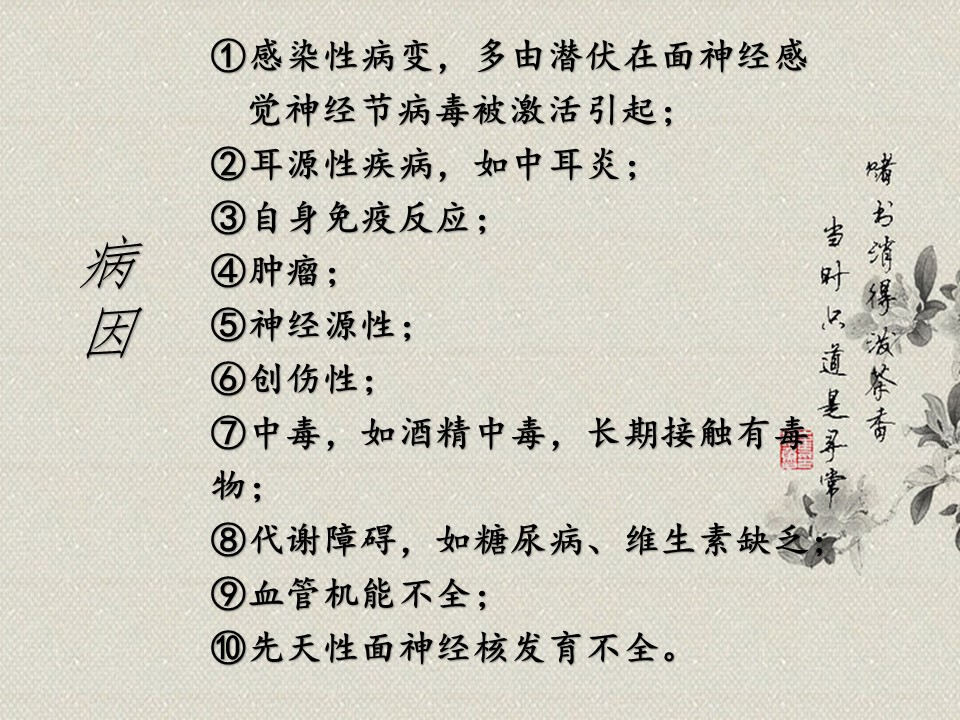 病因
①感染性病变，多由潜伏在面神经感
觉神经节病毒被激活引起；
②耳源性疾病，如中耳炎；
③自身免疫反应；
④肿瘤；
⑤神经源性；
⑥创伤性；
⑦中毒，如酒精中毒，长期接触有毒
物；
⑧代谢障碍，如糖尿病、维生素缺乏；
⑨血管机能不全；
⑩先天性面神经核发育不全。
赌书消得泼茶香
当时只道是寻常